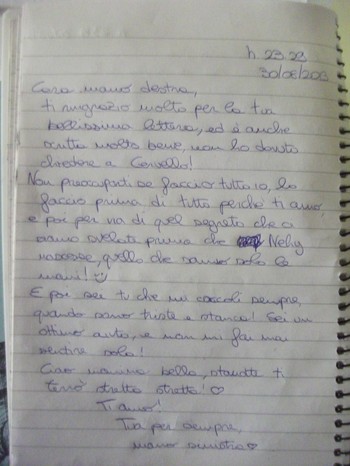 h 23.23
30/08/2013
Cara mano destra,
ti ringrazio molto per la tua
bellissima lettera, ed è anche
scritta molto bene, non ho dovuto
chiedere a Cervello!
Non preoccuparti se faccio tutto io, lo
faccio prima di tutto perché ti amo
e poi per via di quel segreto che ci
siamo svelate prima che Nehy
nascesse, quello che sanno solo le
mani!
E poi sei tu che mi coccoli sempre,
quando sono triste e stanca! Sei un
ottimo aiuto, e non mi fai mai
sentire sola!
Ciao manina bella, stanotte ti
terrò stretta stretta! ♡
Ti amo!
Tua per sempre,
mano sinistra ♡